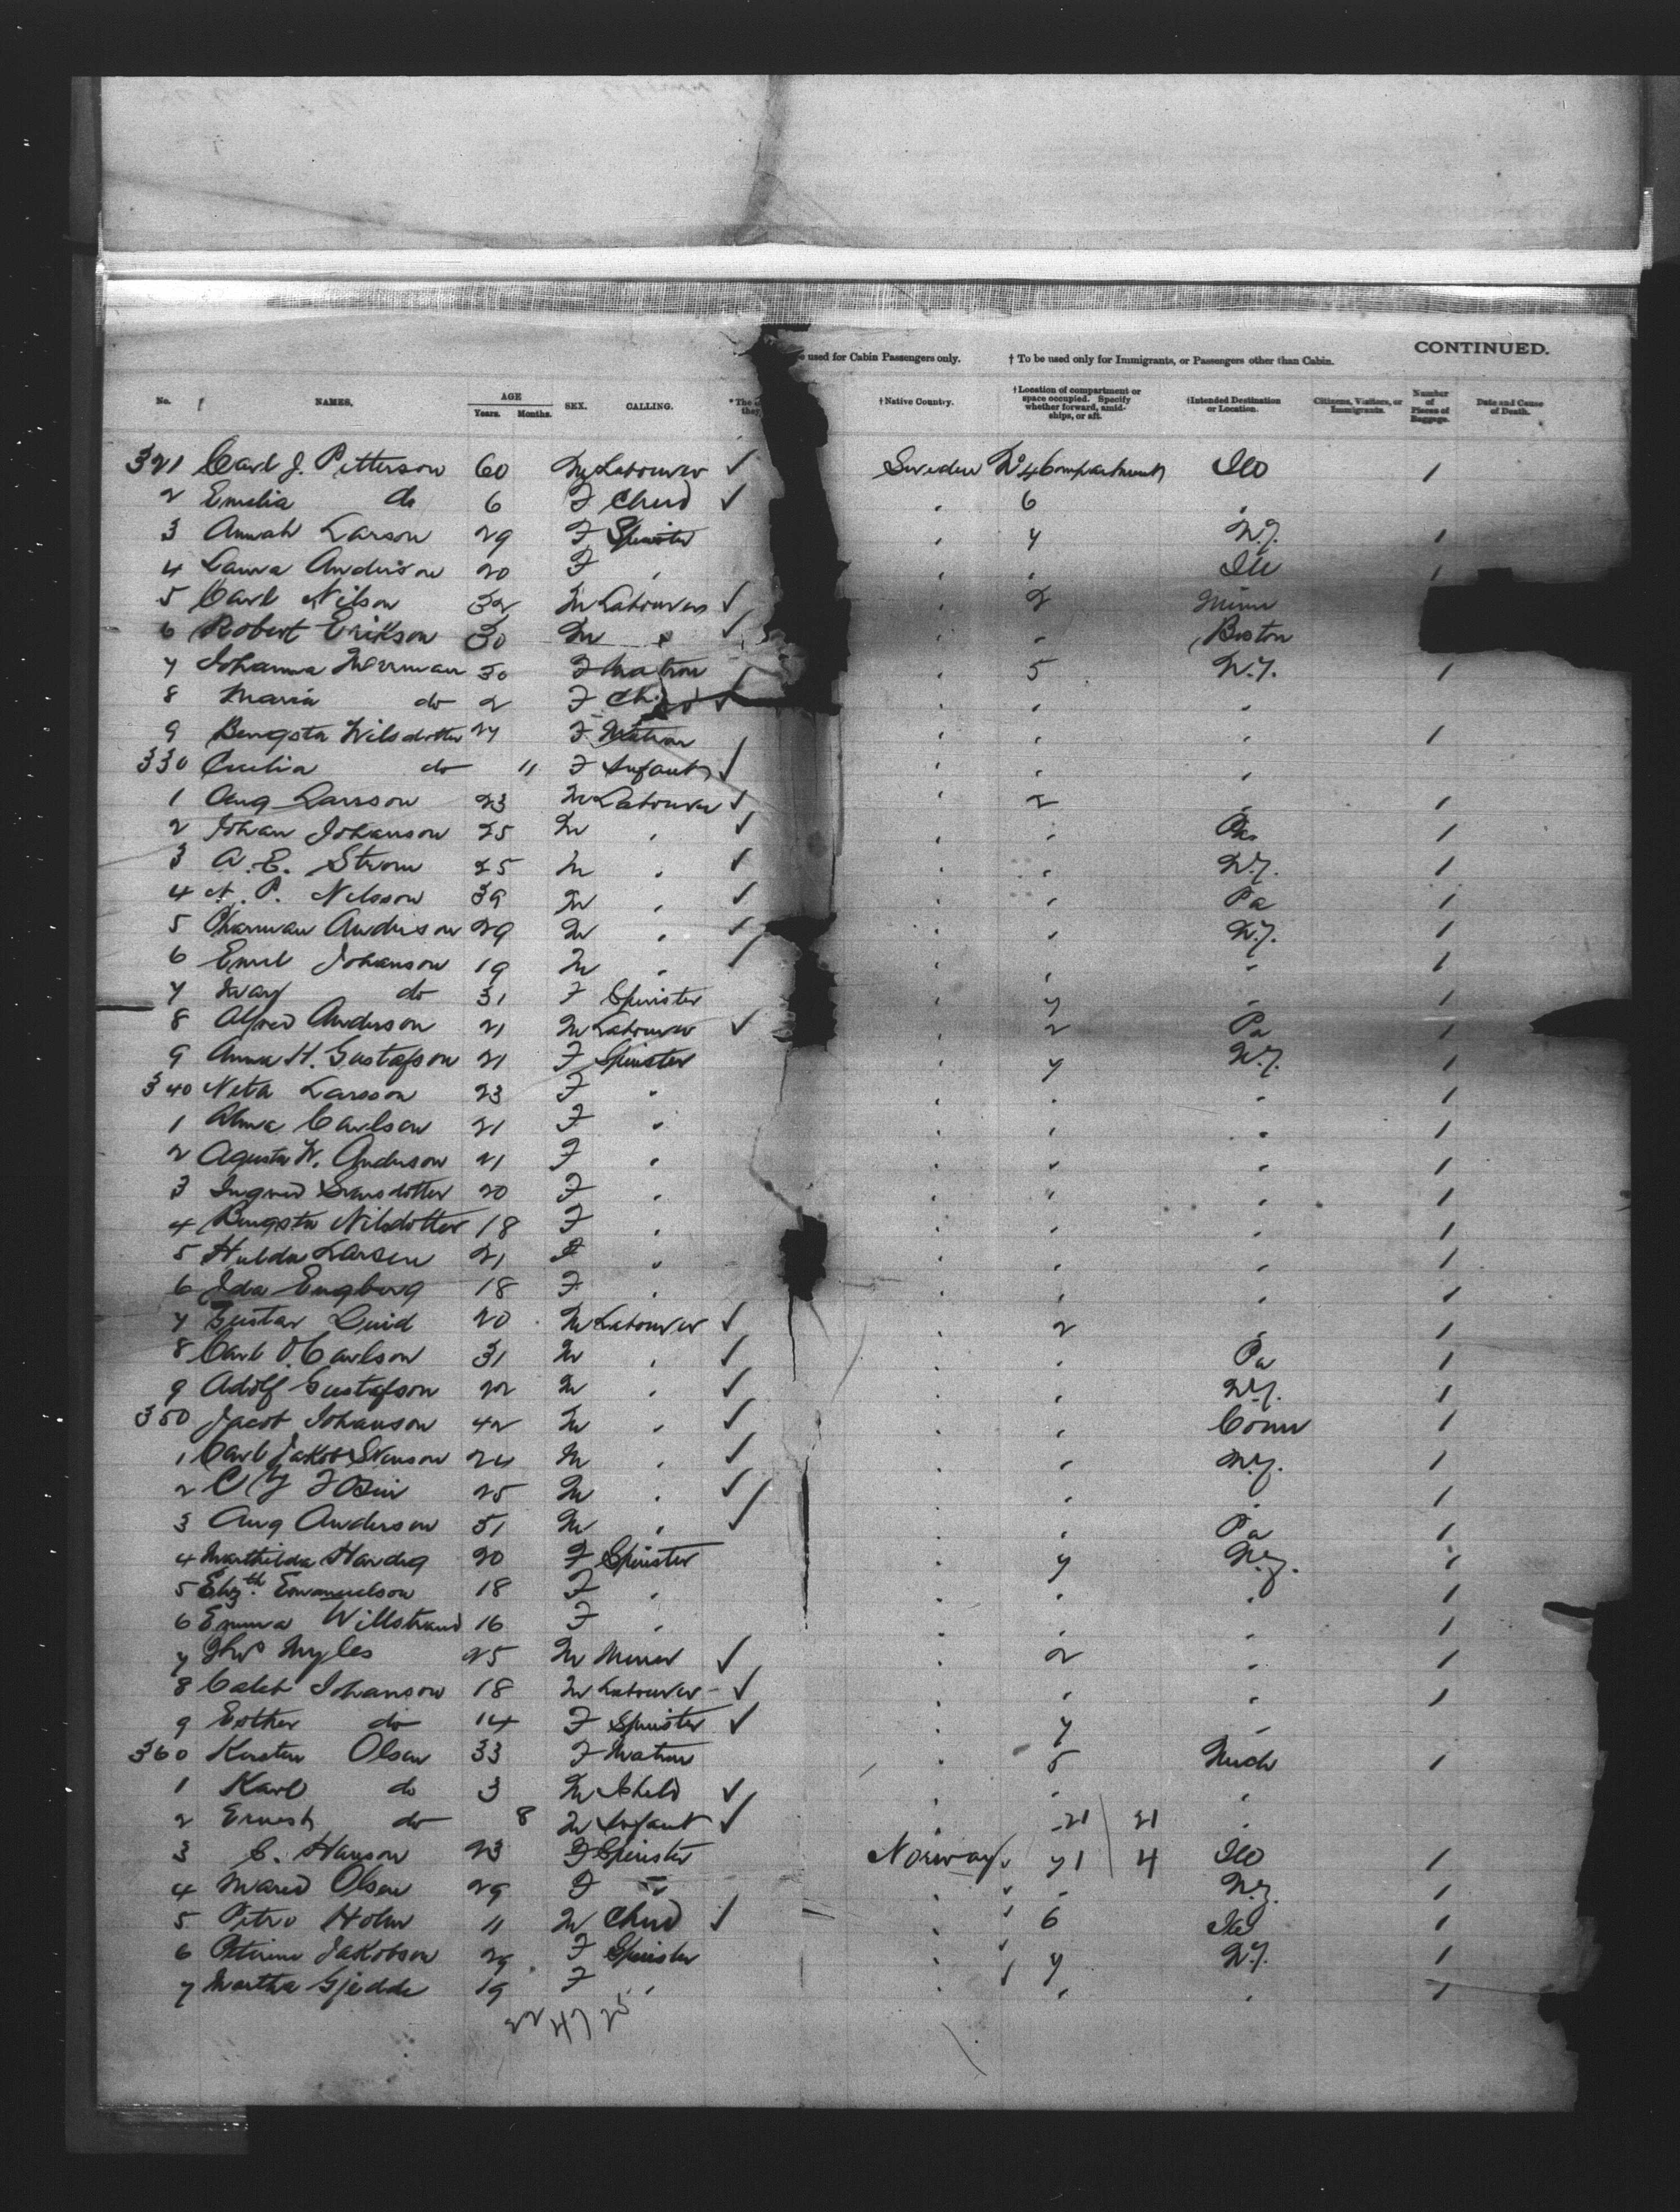 CONTINUED.
e used for Cabin Passengers only. † To be used only for Immigrants, or Passengers other than Cabin.
No. NAMES. AGE Years. Months. SEX. CALLING. * The †Native Country. †Location of compartment or space occupied. Specify whether forward, amidships, or aft. †Intended Destination or Location. Citizens, Visitors, or Immigrants. Number of Pieces of Baggage. Date and Cause of Death.
321 Carl J. Petterson 60 M Labourer ✓ Sweden No 4 Compartment Ills 1
2 Emelia do 6 F Child ✓ " 6 "
3 Annah Larson 29 F Spinster " 7 N.Y. 1
4 Laura Anderson 20 F " " " Ills 1
5 Carl Nilson 32 M Labourer ✓ " 2 Minn
6 Robert Erikson 30 M " ✓ " " Boston
7 Johanna 30 F Matron " 5 N.Y. 1
8 Maria do 2 F Child ✓ " " "
9 Bengsta Nilsdotter 27 F Matron " " " 1
330 Cecilia do 11 F Infant ✓ " " "
1 Aug Larsson 23 M Labourer ✓ " 2 " 1
2 Johan Johanson 25 M " ✓ " " Pa 1
3 A. E. Strom 25 M " ✓ " " N.Y. 1
4 N. P. Nelsson 39 M " ✓ " " Pa 1
5 Anderson 29 M " ✓ " " N.Y. 1
6 Emil Johanson 19 M " ✓ " " " 1
7 Mary do 31 F Spinster " 7 " 1
8 Alfred Anderson 21 M Labourer ✓ " 2 Pa 1
9 Anna H. Gustafson 21 F Spinster " 7 N.Y. 1
340 Neta Larsson 23 F " " " " 1
1 Alma Carlson 21 F " " " " 1
2 Agusta W. Anderson 21 F " " " " 1
3 Ingrid 20 F " " " " 1
4 Bengsta Nilsdotter 18 F " " " " 1
5 Hulda Larsen 21 F " " " " 1
6 Ida Engberg 18 F " " " " 1
7 Gustav 20 M Labourer ✓ " 2 " 1
8 Carl O. Carlson 31 M " ✓ " " Pa 1
9 Adolf Gustafson 22 M " ✓ " " N.Y. 1
350 Jacob Johanson 42 M " ✓ " " Conn 1
1 Carl Jakob Svenson 24 M " ✓ " " N.Y. 1
2 25 M " ✓ " " " 1
3 Aug Anderson 51 M " ✓ " " Pa 1
4 Marthilda Hardig 20 F Spinster " 7 N.Y. 1
5 Elizth Emanuelson 18 F " " " " 1
6 Emma Willstrand 16 F " " " " 1
7 Thos Myles 25 M Miner ✓ " 2 " 1
8 Caleb Johanson 18 M Labourer ✓ " " " 1
9 Esther do 14 F Spinster ✓ " 7 "
360 Kersten Olsen 33 F Matron " 5 Mich 1
1 Karl do 3 M Child ✓ " " "
2 Ernest do 8 M Infant ✓ " " 21 21 "
3 C. Hanson 23 F Spinster Norway 71 4 Ills 1
4 Olsen 29 F " " " N.Y. 1
5 Petro Holm 11 M Child ✓ " 6 1
6 Jakobson 29 F Spinster " 7 N.Y. 1
7 Martha Gjedde 19 F " " " " 1
22 47 25